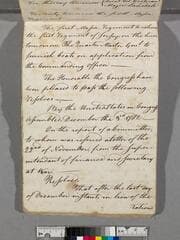 The first Mass. Regiment to relieve
the first Regiment of Jersey on the lines
tomorrow. The Quarter Master Genl. to
furnish boats on application from
the Commanding officer.
The Honorable the Congress have
been pleased to pass the following
Resolves
By the United States in Congress
Assembled December the 3d 1781.
On the report of a committee,
to whom was referred a letter of the
22nd of November from the Super-
intendant of finance and Secretary
at War.
Resolved
That after the last day
of December instant in lieu of the
rations